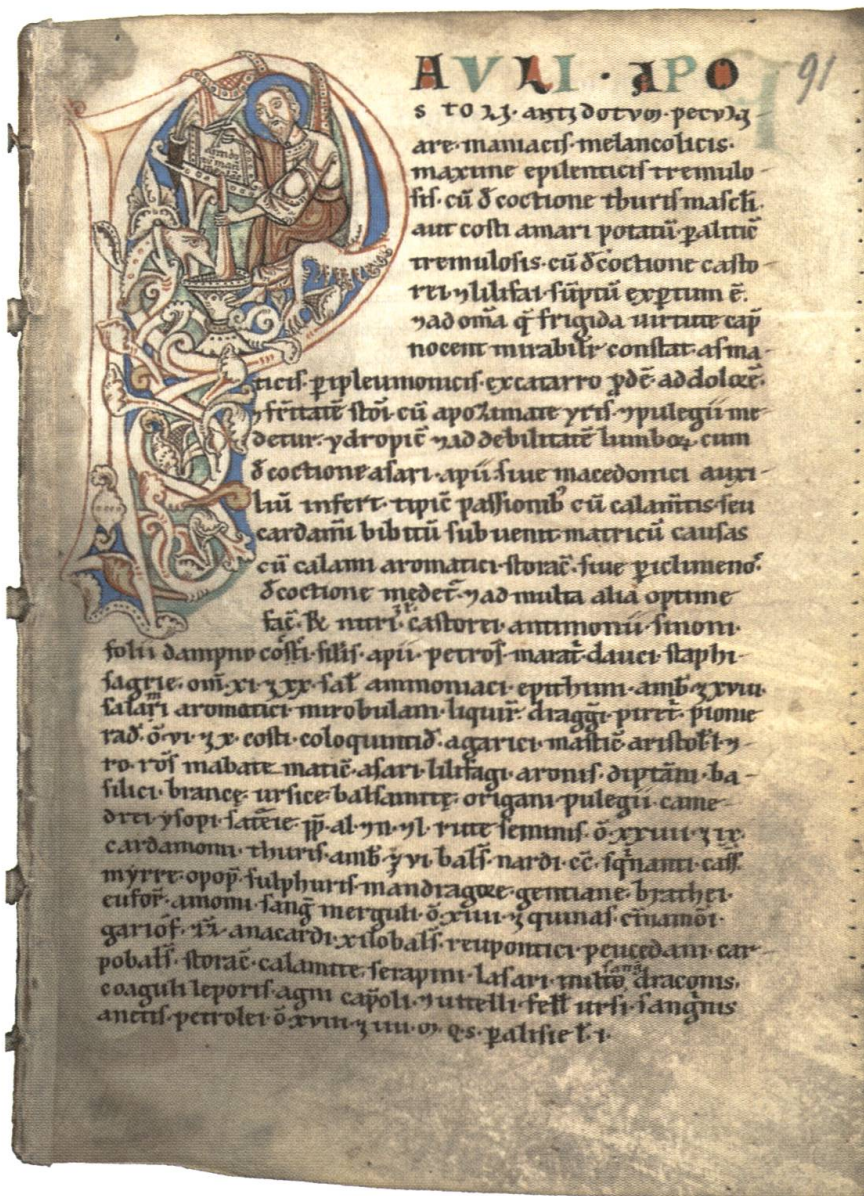 P AVLI · APO 91
STOLI · antidotum · peculi
are · maniacis · melancolicis ·
maxime epilenticis tremulo-
sis · cū d̄coctione thuris mascł̄i
aut costi amari potatū p̄alitic̄
tremulosis · cū d̄coctione casto-
rei ⁊ lilifai · sūptū exꝑtum ē.
⁊ ad om̄a q̄ frigida uirtute cap̄
nocent mirabilīr constat · asma-
ticis · ꝑipleumonicis · ex catarro ꝓdē · ad dolorē ·
⁊ cū apozimate yris · ⁊ pulegii me-
detur · ydropic̄ ⁊ ad debilitatē lumboꝝ · cum
d̄coctione asari · apii · siue macedonici auxi-
liū infert · tipic̄ passionib⁹ cū calam̄tis · seu
cardam̄i bibitū subuenit · matricū causas
cū calami aromatici · storac̄ · siue ꝑiclimeno᷒
d̄coctione medet᷒ · ⁊ ad multa alia optime
fac̄ · R̄ nitri · castorei · antimonii · sinoni ·
folii dampnis costi · silis · apii · petros̄ · marat̄ · dauci · staphi-
sagrie · om̄ · xi · ʒ xx · sal̄ ammoniaci · epithimi · amb̄ · ʒ xviii ·
aromatici · mirobulani · liquir̄ · draggi · piret̄ · pionie
rad̄ · ō · vi · ʒ x · costi · coloquintid̄ · agarici · mastic̄ · aristoł̄ł̄ ·
ro · ros̄ · matic̄ · asari · lilifagi · aronis · diptam̄ · ba-
silici · brancę · ursice · balsamitę · origani · pulegii · came-
drei · ysopi · p̄p̄ · al · ⁊ n · ⁊ l · rute seminis · ō · xxiiii · ʒ ix ·
cardamomi · thuris · amb̄ · ʒ vi · bals̄ · nardi · cc̄ · sq̄nanti · cass̄
myrre · opop̄ · sulphuris · mandragorę · gentiane · brathei ·
eufor̄ · amomi · sanḡ merguli · ō · xiiii · ʒ quinas · cīnamōi ·
gariof̄ · anacardi · xilobals̄ · reupontici · peucedani · car-
pobals̄ · storac̄ · calamite · serapini · lasari · sanḡ draconis ·
coaguli leporis · agni · cap̄oli · ⁊ uitelli · fell̄ ursi · sanguis
anetis · petrolei · ō · xviii · ʒ iiii · m̄ · q̄s · ꝑalisie ł̄ · i ·